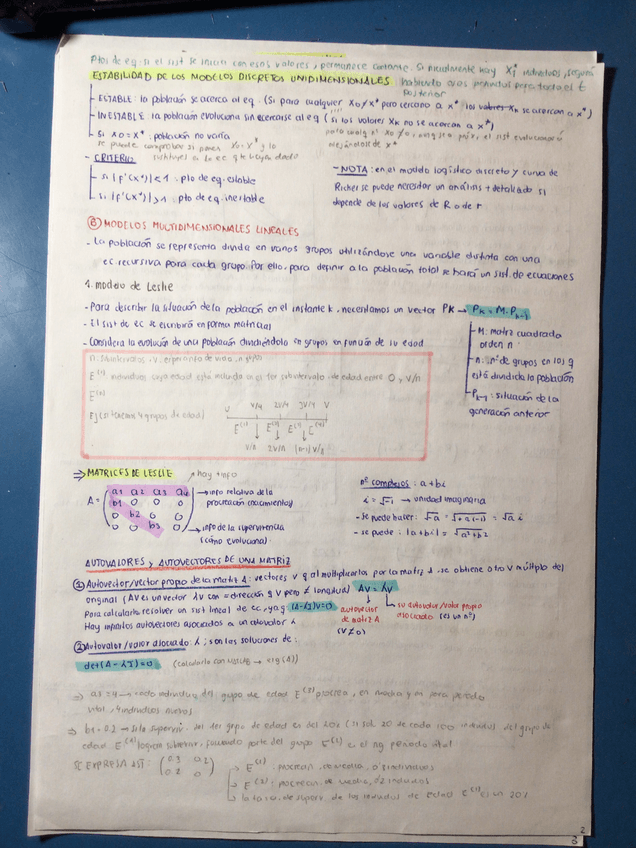 Ptos de eq: si el sist se inicia con esos valores, permanece constante. Si inicialmente hay X* individuos, seguirá
habiendo esos individuos para todo el t
posterior
ESTABILIDAD DE LOS MODELOS DISCRETOS UNIDIMENSIONALES
- ESTABLE: la población se acerca al eq. (Si para cualquier X0≠X* pero cercano a X* los valores XK se acercan a X*)
- INESTABLE: la población evoluciona sin acercarse al eq (si los valores XK no se acercan a X*)
el sist evolucionará
alejándose de X*
- Si X0=X*: población no varía
se puede comprobar si pones X0=X* y lo
sustituyes a la ec que te hayan dado
- CRITERIO:
- si |f'(X*)|<1: pto de eq. estable
- si |f'(X*)|>1: pto de eq. inestable
- NOTA: en el modelo logístico discreto y curva de
Richer se puede necesitar un análisis + detallado si
depende de los valores de R o de r
B) MODELOS MULTIDIMENSIONALES LINEALES
- La población se representa dividida en varios grupos utilizándose una variable distinta con una
ec. recursiva para cada grupo. Por ello, para definir a la población total se hará un sist. de ecuaciones
1. modelo de Leslie
- Para describir la situación de la población en el instante k, necesitamos un vector PK → PK = M·Pk-1
- El sist de ec se escribirá en forma matricial
- Considera la evolución de una población dividiéndola en grupos en función de su edad
- M: matriz cuadrada
orden n
- n: nº de grupos en los q
está dividida la población
- Pk-1: situación de la
generación anterior
n: subintervalos, v: esperanza de vida, n grupos
E(1): individuos cuya edad está incluida en el 1er subintervalo de edad entre 0 y V/n
E(n)
Ej (si tenemos 4 grupos de edad)
V/4 2V/4 3V/4 V
E(1) E(2) E(3) E(4)
V/n 2V/n (n-1)V/n
⇒ MATRICES DE LESLIE → hay + info
A = (a1 a2 a3 a4
b1 0 0 0
0 b2 0 0
0 0 b3 0)
→ info relativa de la
procreación (nacimientos)
→ info de la supervivencia
(cómo evoluciona)
nº complejos: a+bi
i = √-1 → unidad imaginaria
- se puede hacer: √-a = √+a(-1) = √a i
- se puede: |a+bi| = √a²+b²
AUTOVALORES y AUTOVECTORES DE UNA MATRIZ
1) Autovector/vector propio de la matriz A: vectores V q al multiplicarlos por la matriz A, se obtiene otro V múltiplo del
original (AV es un vector λV con = dirección q V pero ≠ longitud) AV = λV
Para calcularlo: resolver un sist lineal de ec. ya q (A-λI)V=0
Hay infinitos autovectores asociados a un autovalor λ
autovector
de matriz A
(V≠0)
su autovalor/valor propio
asociado (es un nº)
2) Autovalor/valor asociado λ: son las soluciones de:
det(A-λI)=0 (calcularlo con
⇒ a1=4 → cada individuo del grupo de edad E(1) procrea, en media y en un periodo
vital, 4 individuos nuevos
⇒ b1=0.2 → la superviv. del 1er grupo de edad es del 20% (si sol. 20 de cada 100 individuos del grupo de
edad E(1) logran sobrevivir, formando parte del grupo E(2) en el sig periodo vital
SE EXPRESA ASÍ: (0.3 0.2
0.2 0)
→ E(1): procrean, de media, 0.3 individuos
→ E(2): procrean, de media, 0.2 individuos
→ la tasa de superv. de los individuos de edad E(1) es un 20%
2
3